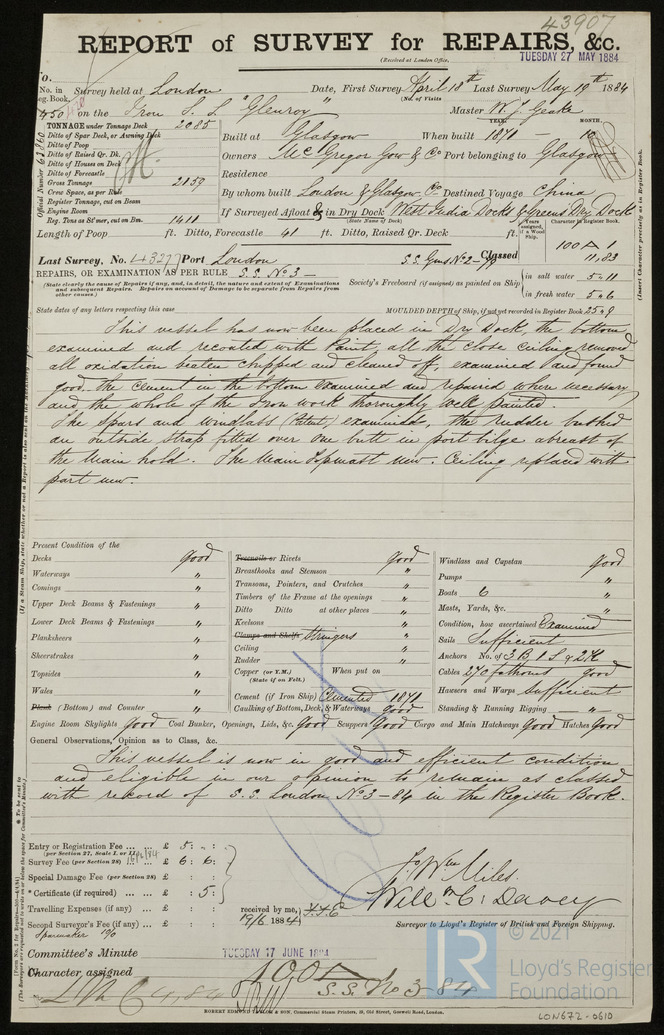 43907
REPORT of SURVEY for REPAIRS, &c.
(Received at London Office,
TUESDAY 27 MAY 1884
No. in Reg. Book. Survey held at London Date, First Survey April 18th Last Survey May 19th 1884
(No. of Visits
450 on the Iron S. S. "Glenroy" Master W. J. Geake
TONNAGE under Tonnage Deck 2085
Ditto of Spar Deck, or Awning Deck
Ditto of Poop
Ditto of Raised Qr. Dk.
Ditto of Houses on Deck
Ditto of Forecastle
Gross Tonnage 2159
Crew Space, as per Rule
Register Tonnage, cut on Beam
Engine Room
Reg. Tons as St'mer, cut on Bm. 1411
Official Number
YEAR. MONTH.
Built at Glasgow When built 1871 - 10
Owners McGregor Gow & Co Port belonging to Glasgow
Residence
By whom built London & Glasgow Co. Destined Voyage China
If Surveyed Afloat & in Dry Dock West India Docks & Greens Dry Dock
(State Name of Dock)
Length of Poop ft. Ditto, Forecastle 41 ft. Ditto, Raised Qr. Deck ft.
Years assigned, if a Wood Ship.
Character in Register Book.
100 A 1
11,83
Last Survey, No. 43277 Port London S.S. Gns No 2-79 Classed
REPAIRS, OR EXAMINATION AS PER RULE S.S. No 3 -
(State clearly the cause of Repairs if any, and, in detail, the nature and extent of Examinations and subsequent Repairs. Repairs on account of Damage to be separate from Repairs from other causes.)
Society's Freeboard (if assigned) as painted on Ship
in salt water 5-11
in fresh water 5-6
State dates of any letters respecting this case
MOULDED DEPTH of Ship, if not yet recorded in Register Book 25-9
This vessel has now been placed in Dry Dock, the bottom
examined and recoated with Paint, all the close ceiling removed
all oxidation beaten chipped and cleaned off, examined and found
good. the cement in the bottom examined and repaired when necessary
and the whole of the Iron work thoroughly well painted.
The Spars and windlass (Patent) examined, the rudder bushed
an outside strap fitted over one butt in port bilge abreast of
the Main hold. The Main Topmast new. Ceiling replaced with
part new.
Present Condition of the
Decks good
Waterways "
Comings "
Upper Deck Beams & Fastenings "
Lower Deck Beams & Fastenings "
Planksheers "
Sheerstrakes "
Topsides "
Wales "
Plank (Bottom) and Counter "
Treenails or Rivets good
Breasthooks and Stemson "
Transoms, Pointers, and Crutches "
Timbers of the Frame at the openings "
Ditto Ditto at other places "
Keelsons "
Clamps and Shelfs Stringers "
Ceiling "
Rudder "
Copper (or Y.M.) When put on
(State if on Felt.)
Cement (if Iron Ship) Cemented 1871
Caulking of Bottom, Deck, & Waterways good
Windlass and Capstan good
Pumps "
Boats 6 "
Masts, Yards, &c. "
Condition, how ascertained Examined
Sails Sufficient
Anchors No. of 3 B 1 S & 2 K
Cables 270 fathoms good
Hawsers and Warps sufficient
Standing & Running Rigging "
Engine Room Skylights Good Coal Bunker, Openings, Lids, &c. Good Scuppers Good Cargo and Main Hatchways Good Hatches Good
General Observations, Opinion as to Class, &c.
This vessel is now in good and efficient condition
and eligible in our opinion to remain as classed
with record of S.S. London No 3-84 in the Register Book.
Entry or Registration Fee £ 5: - :
(per Section 27, Scale 1, or II)
Survey Fee (per Section 28) £ 6: 6:
Special Damage Fee (per Section 28) £
* Certificate (if required) £ : 5:
Travelling Expenses (if any) £
Second Surveyor's Fee (if any) £
received by me,
19/6 1884
J. Wm Miles.
Will m C: Davey
Surveyor to Lloyd's Register of British and Foreign Shipping.
Committee's Minute TUESDAY 17 JUNE 1884
Character assigned 100 A
S.S. No 3-84
ROBERT EDMUND TAYLOR & SON, Commercial Steam Printers, 19, Old Street, Goswell Road, London.
© 2021
LR
Lloyd's Register
Foundation
LON672-0610